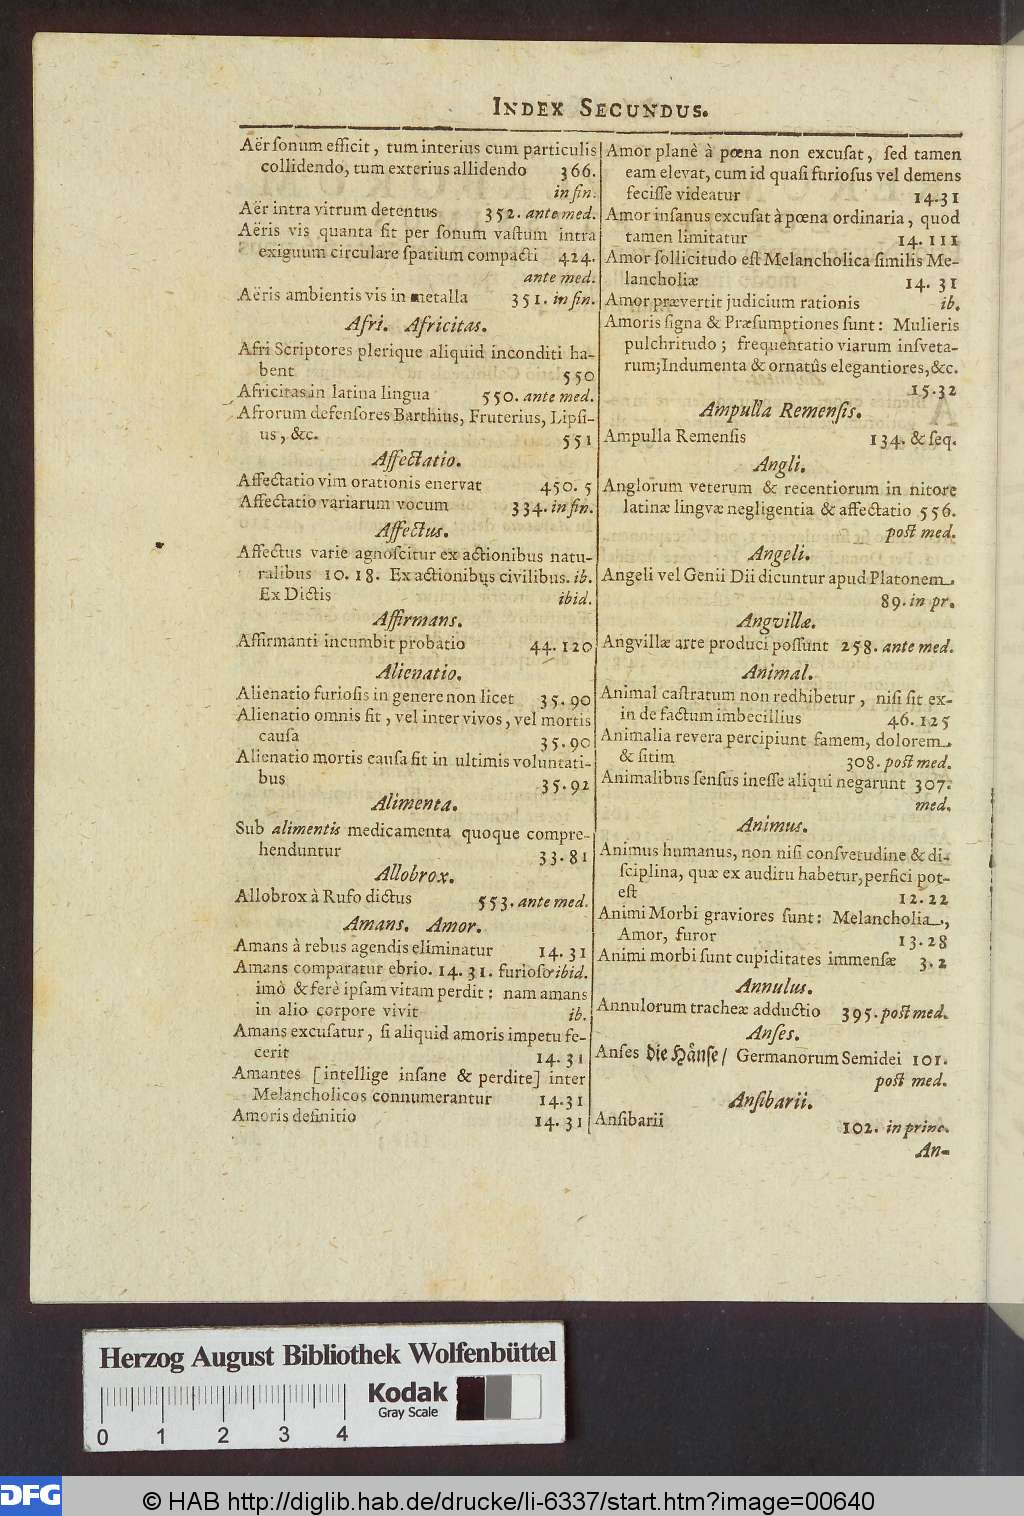 INDEX SECUNDUS.
Aër ſonum efficit, tum interius cum particulis
collidendo, tum exterius allidendo 366.
in fin.
Aër intra vitrum detentus 352. ante med.
Aëris vis quanta ſit per ſonum vaſtum intra
exiguum circulare ſpatium compacti 424.
ante med.
Aëris ambientis vis in metalla 351. in fin.
Afri. Africitas.
Afri Scriptores plerique aliquid inconditi ha-
bent 550
Africitas in latina lingua 550. ante med.
Afrorum defenſores Barthius, Fruterius, Lipſi-
us, &c. 551
Affectatio.
Affectatio vim orationis enervat 450. 5
Affectatio variarum vocum 334. in fin.
Affectus.
Affectus varie agnoſcitur ex actionibus natu-
ralibus 10. 18. Ex actionibus civilibus. ib.
Ex Dictis ibid.
Affirmans.
Affirmanti incumbit probatio 44. 120
Alienatio.
Alienatio furioſis in genere non licet 35. 90
Alienatio omnis fit, vel inter vivos, vel mortis
cauſa 35. 90
Alienatio mortis cauſa fit in ultimis voluntati-
bus 35. 92
Alimenta.
Sub alimentis medicamenta quoque compre-
henduntur 33. 81
Allobrox.
Allobrox à Rufo dictus 553. ante med.
Amans. Amor.
Amans à rebus agendis eliminatur 14. 31
Amans comparatur ebrio. 14. 31. furioſo ibid.
imò & ferè ipſam vitam perdit: nam amans
in alio corpore vivit ib.
Amans excuſatur, ſi aliquid amoris impetu fe-
cerit 14. 31
Amantes [intellige inſane & perdite] inter
Melancholicos connumerantur 14. 31
Amoris definitio 14. 31
Amor planè à pœna non excuſat, ſed tamen
eam elevat, cum id quaſi furioſus vel demens
feciſſe videatur 14. 31
Amor inſanus excuſat à pœna ordinaria, quod
tamen limitatur 14. 111
Amor ſollicitudo eſt Melancholica ſimilis Me-
lancholiæ 14. 31
Amor prævertit judicium rationis ib.
Amoris ſigna & Præſumptiones ſunt: Mulieris
pulchritudo; frequentatio viarum inſveta-
rum; Indumenta & ornatûs elegantiores, &c.
15. 32
Ampulla Remenſis.
Ampulla Remenſis 134. & ſeq.
Angli.
Anglorum veterum & recentiorum in nitore
latinæ lingvæ negligentia & affectatio 556.
poſt med.
Angeli.
Angeli vel Genii Dii dicuntur apud Platonem.
89. in pr.
Angvillæ.
Angvillæ arte produci poſſunt 258. ante med.
Animal.
Animal caſtratum non redhibetur, niſi ſit ex-
in de factum imbecillius 46. 125
Animalia revera percipiunt famem, dolorem
& ſitim 308. poſt med.
Animalibus ſenſus ineſſe aliqui negarunt 307.
med.
Animus.
Animus humanus, non niſi conſvetudine & di-
ſciplina, quæ ex auditu habetur, perfici pot-
eſt 12. 22
Animi Morbi graviores ſunt: Melancholia,
Amor, furor 13. 28
Animi morbi ſunt cupiditates immenſæ 3. 2
Annulus.
Annulorum tracheæ adductio 395. poſt med.
Anſes.
Anſes die Hänſe / Germanorum Semidei 101.
poſt med.
Anſibarii.
Anſibarii 102. in princ.
An-
Herzog August Bibliothek Wolfenbüttel
Kodak
Gray Scale
0 1 2 3 4
DFG
© HAB http://diglib.hab.de/drucke/li-6337/start.htm?image=00640